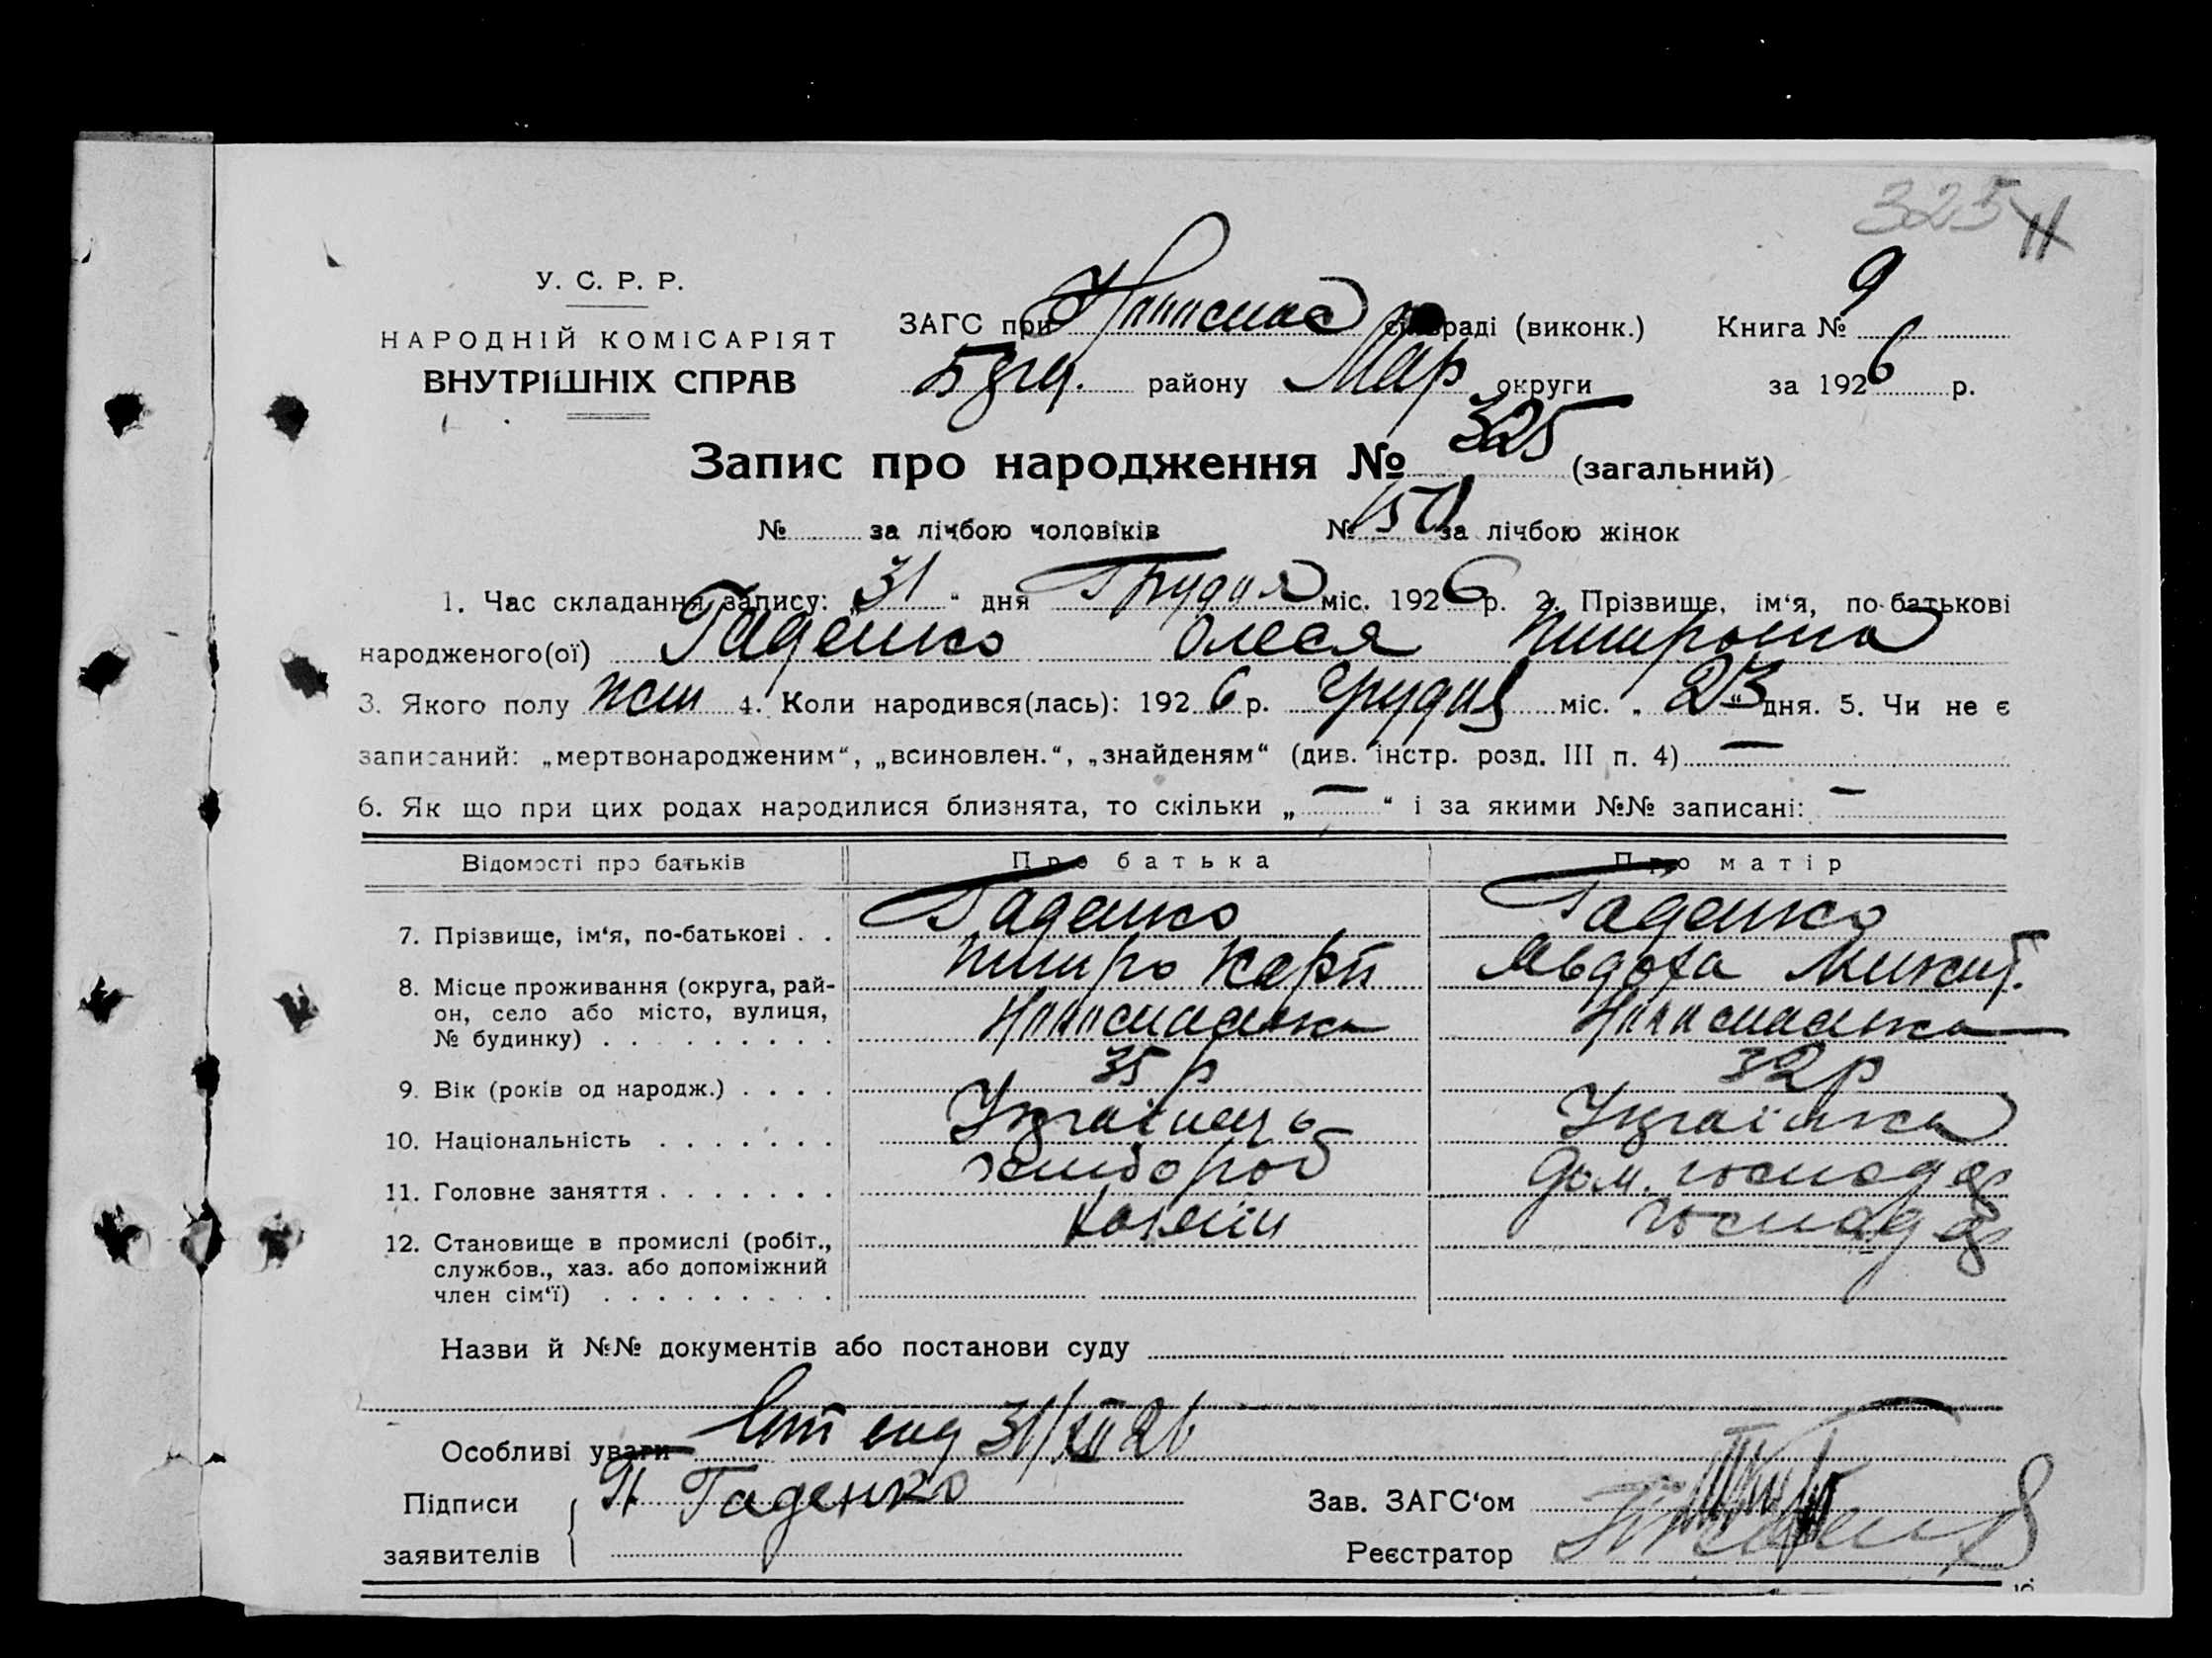 325
У. С. Р. Р.
НАРОДНІЙ КОМІСАРІЯТ
ВНУТРІШНІХ СПРАВ
ЗАГС при сільраді (виконк.) Книга № 9
району Мар округи за 1926 р.
Запис про народження № 325 (загальний)
№ за лічбою чоловіків № за лічбою жінок
1. Час складання запису: „31“ дня Грудня міс. 1926 р. 2. Прізвище, ім‘я, по-батькові
народженого(ої) Гаденко Олеся
3. Якого полу жін 4. Коли народився(лась): 1926 р. Грудня міс. „23“ дня. 5. Чи не є
записаний: „мертвонародженим“, „всиновлен.“, „знайденям“ (див. інстр. розд. III п. 4) —
6. Як що при цих родах народилися близнята, то скільки „—“ і за якими №№ записані: —
Відомості про батьків Про батька Про матір
7. Прізвище, ім‘я, по-батькові . . Гаденко Гаденко
Карп Явдоха Микит.
8. Місце проживання (округа, рай-
он, село або місто, вулиця,
№ будинку) . . . . . . . . .
9. Вік (років од народж.) . . . . 35 р 32 р
10. Національність . . . . . . . Українець Українка
11. Головне заняття . . . . . . . хлібороб дом. господар
12. Становище в промислі (робіт., хазяїн господар
службов., хаз. або допоміжний
член сім‘ї) . . . . . . . . .
Назви й №№ документів або постанови суду
Особливі уваги 31/XII 26
Підписи П Гаденко Зав. ЗАГС‘ом
заявителів Реєстратор